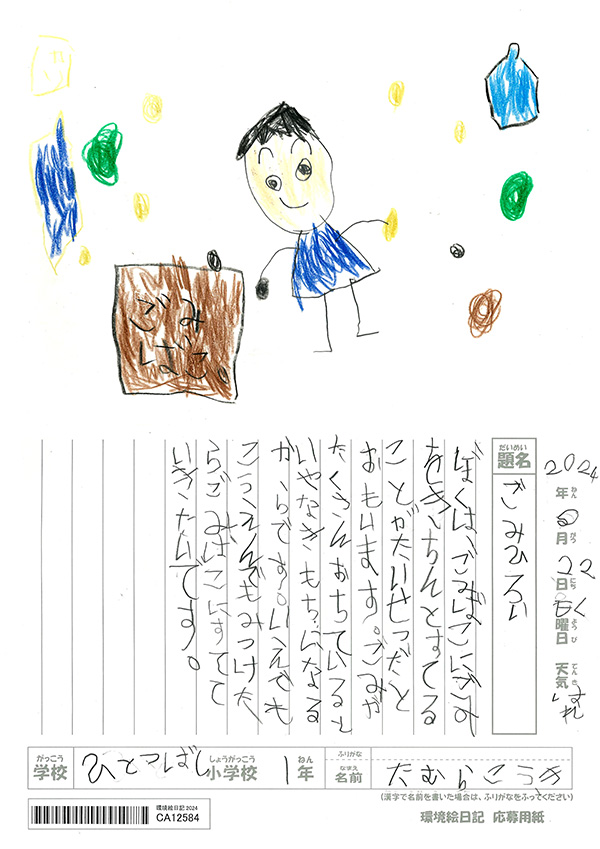 ごみ
ばこ
2024年ねん 8月がつ 22日にち もく曜日ようび 天気てんき はれ
題名だいめい ごみひろい
ぼくは、ごみばこにごみ
をきちんとすてる
ことがたいせつだと
おもいます。ごみが
たくさんおちていると
いやなきもちになる
からです。いえでも
こうえんでもみつけた
らごみばこにすてて
いきたいです。
学校がっこう ひとつばし小学校しょうがっこう 1年ねん ふりがな 名前なまえ たむらこうき
(漢字で名前を書いた場合は、ふりがなをふってください)
環境絵日記 応募用紙
環境絵日記 2024
CA12584